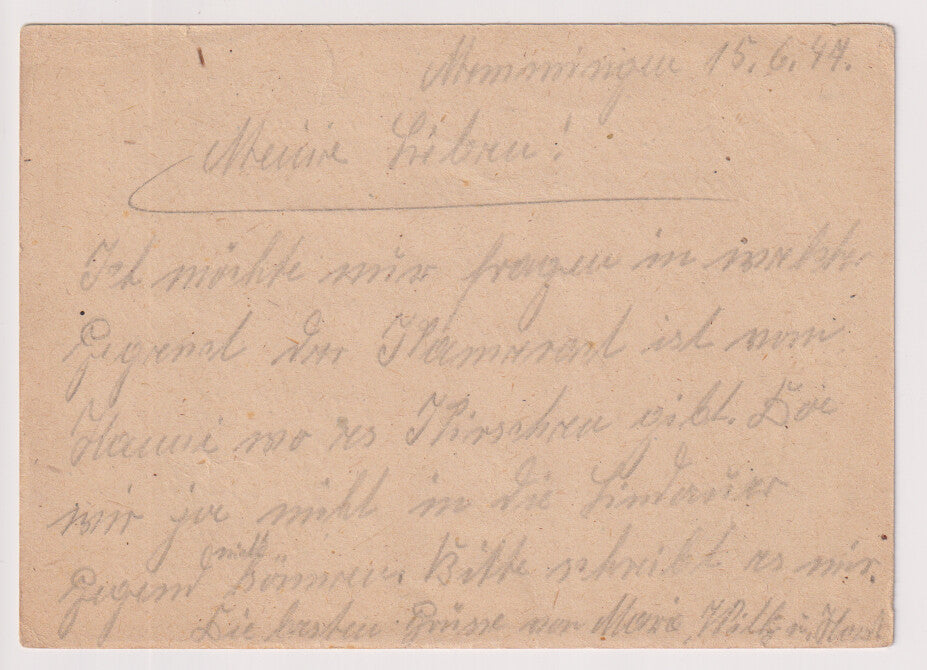 Memmingen 15.6.47.
Meine Lieben!
Ich möchte nur fragen in welcher
Gegend der Kamerad ist vom
Hanni wo es Kirschen gibt. Da
wir ja nicht in die Lindauer
Gegend nicht können. Bitte schreibt es mir.
Die besten Grüsse von Marie, Willi u. Horst